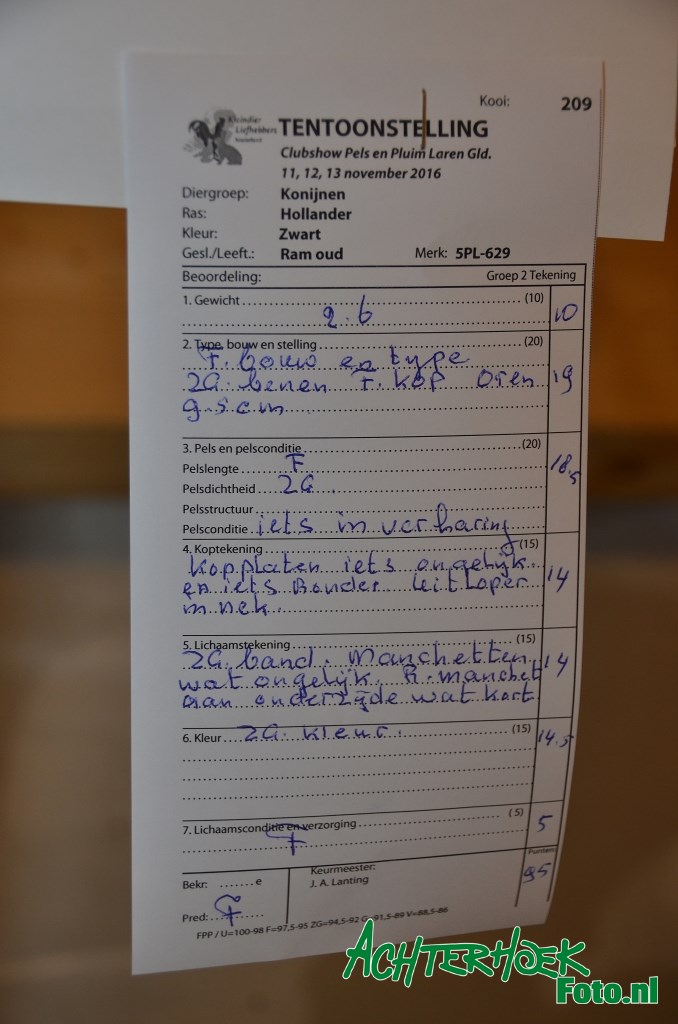 Kooi: 209
Kleindier
Liefhebbers
TENTOONSTELLING
Clubshow Pels en Pluim Laren Gld.
11, 12, 13 november 2016
Diergroep: Konijnen
Ras: Hollander
Kleur: Zwart
Gesl./Leeft.: Ram oud Merk: 5PL-629
Beoordeling: Groep 2 Tekening
1. Gewicht (10)
2.6 10
2. Type, bouw en stelling (20)
F. bouw en type
ZG. benen F. kop oren 19
9.5 cm
3. Pels en pelsconditie (20)
Pelslengte F 18.5
Pelsdichtheid ZG.
Pelsstructuur
Pelsconditie iets in verharing
4. Koptekening (15)
Kopplaten iets ongelijk
en iets Ronder uitloper 14
in nek
5. Lichaamstekening (15)
ZG. band. Manchetten 14
wat ongelijk. R. manchet
aan onderzijde wat kort
6. Kleur ZG. kleur. (15) 14.5
7. Lichaamsconditie en verzorging (5)
F 5
Bekr: e Keurmeester: Punten:
J. A. Lanting 95
Pred: F
FPP / U=100-98 F=97,5-95 ZG=94,5-92 G=91,5-89 V=88,5-86
ACHTERHOEK
Foto.nl